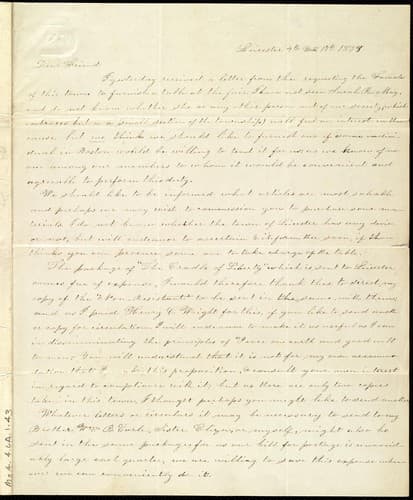 Leicester 4th Mo 17th 1839
Dear Friend
I yesterday received a letter from thee requesting the Friends
of this town to furnish a table at the fair I have not seen Sarah H. May,
and do not know whether she or any other person out of our society (which
embraces but a small section of the township) will feel an interest in the
cause but we think we should like to furnish one if some individ-
uals in Boston would be willing to tend it for us, as we know of no
one among our members to whom it would be convenient and
agreeable to perform this duty.
We should like to be informed what articles are most salable
and perhaps we may wish to commission you to purchase some ma-
terials I do not know whether the town of Leicester has any device
or not, but will endeavor to ascertain & inform thee soon, if thee
thinks you can procure some one to take charge of the table.
The package of "The Cradle of Liberty" which is sent to Leicester,
comes free of expense, I would therefore thank thee to direct my
copy of the "Non Resistant" to be sent in the same with them,
and as I paid Henry C. Wright for this, if you like to send another
copy for circulation I will endeavor to make it as useful as I can
in disseminating the principles of "Peace on earth and good will
to men" You will understand that it is not for my own accommo-
dation that I make this proposition, I consult your own interest
in regard to compliance with it, but as there are only two copies
taken in this town, I thought perhaps you might like to send another
Whatever letters or circulars it may be necessary to send to my
Brother Wm B. Earle, Sister Eliza, or myself, might also be
sent in the same package, for as our bill for postage is necessar-
ily large each quarter, we are willing to save this expense when-
ever we can conveniently do it.
Ms.A.4.6A.1.43